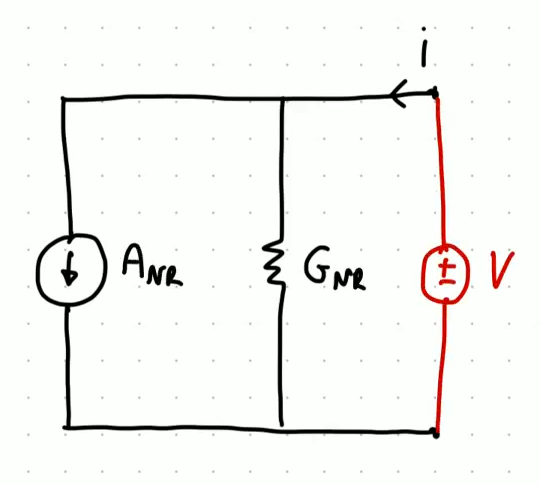 i
A_NR
G_NR
±
V